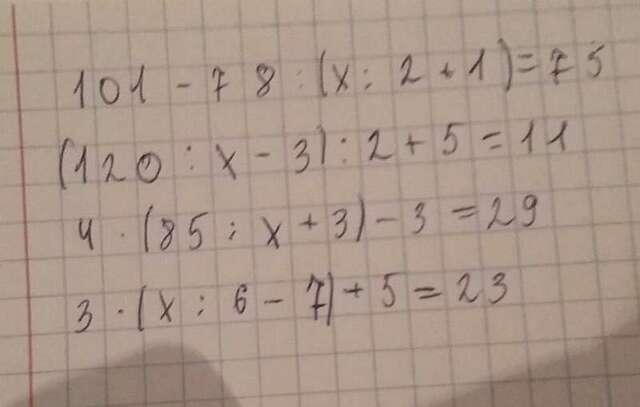 101 - 78 : (x : 2 + 1) = 75
(120 : x - 3) : 2 + 5 = 11
4 · (85 : x + 3) - 3 = 29
3 · (x : 6 - 7) + 5 = 23